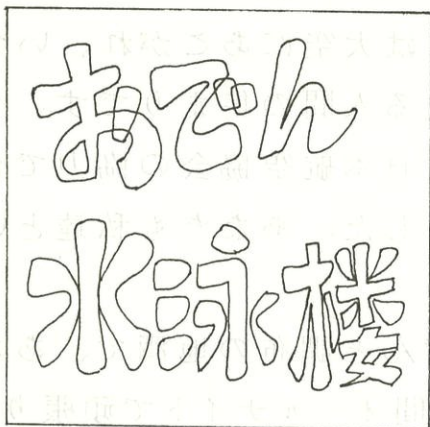 おでん
水泳楼